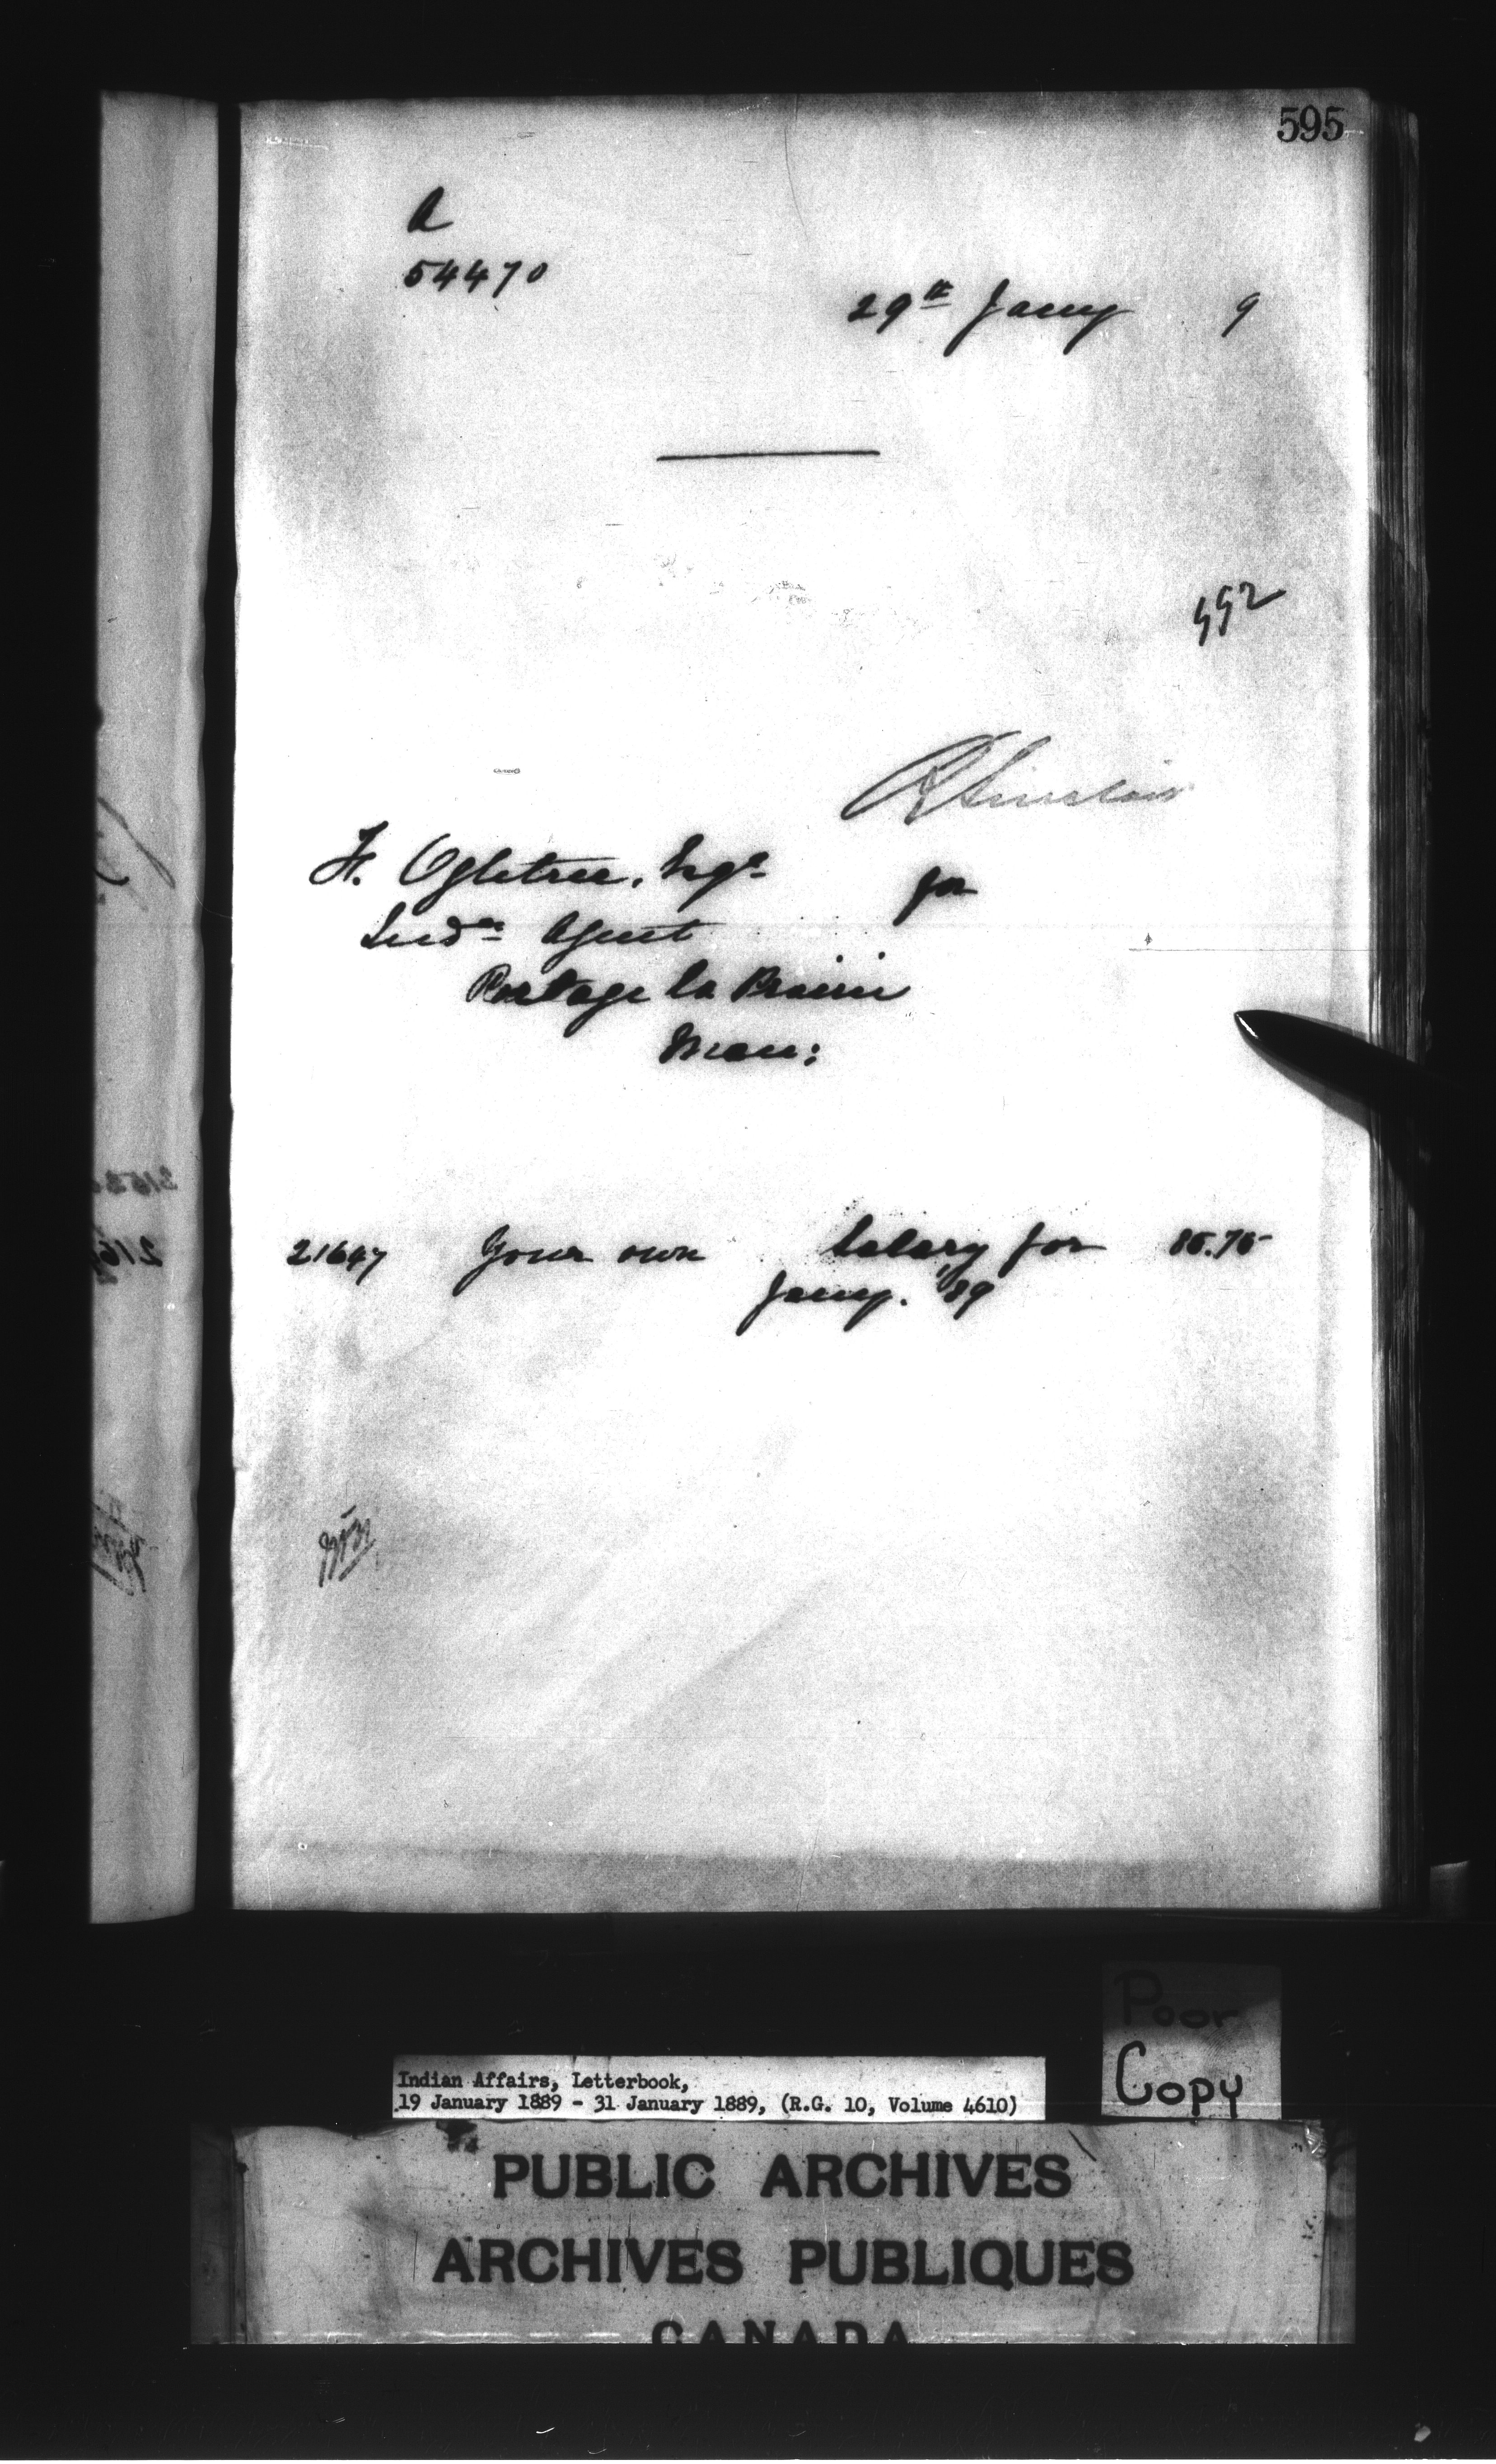 595
A
54470
29th Jany 9
552
R Sinclair
F. Ogletree, Esqre for
Indn Agent
Portage la Prairie
Man:
21647 Your own Salary for
Jany. '89
Poor
Copy
Indian Affairs, Letterbook,
19 January 1889 - 31 January 1889, (R.G. 10, Volume 4610)
PUBLIC ARCHIVES
ARCHIVES PUBLIQUES
CANADA